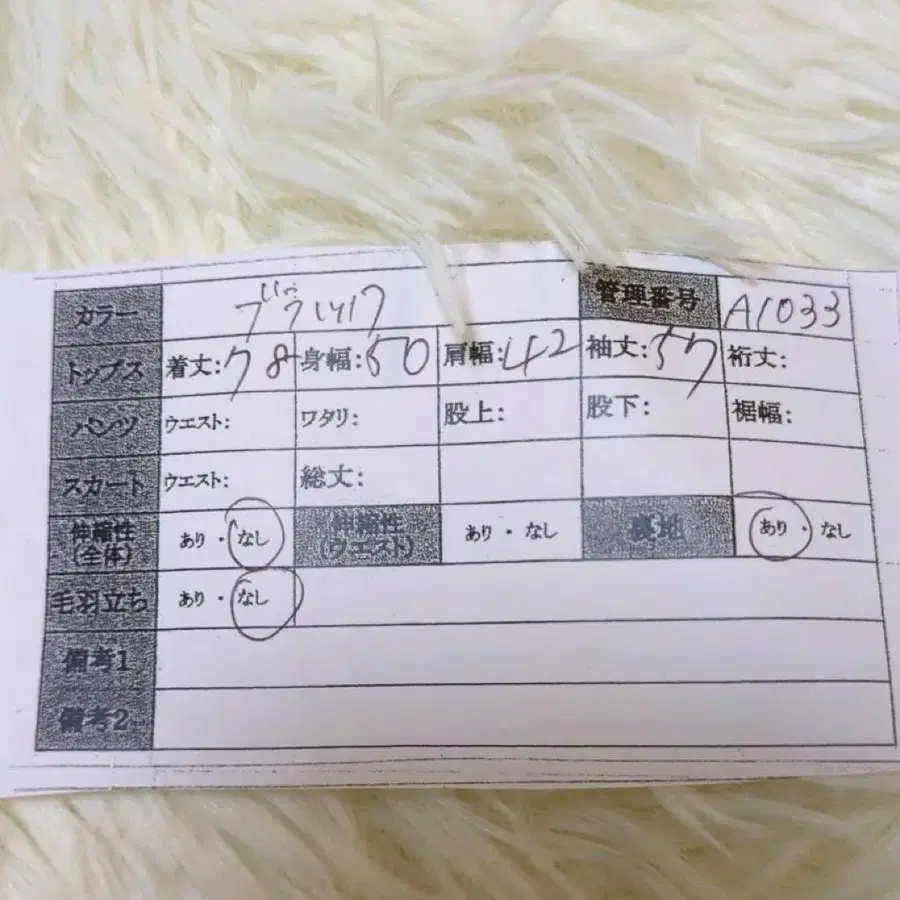 カラー ブラック 管理番号 A1033
トップス 着丈:78 身幅:50 肩幅:42 袖丈:57 裄丈:
パンツ ウエスト: ワタリ: 股上: 股下: 裾幅:
スカート ウエスト: 総丈:
伸縮性 あり・なし 伸縮性 あり・なし 裏地 あり・なし
(全体) (ウエスト)
毛羽立ち あり・なし
備考1
備考2